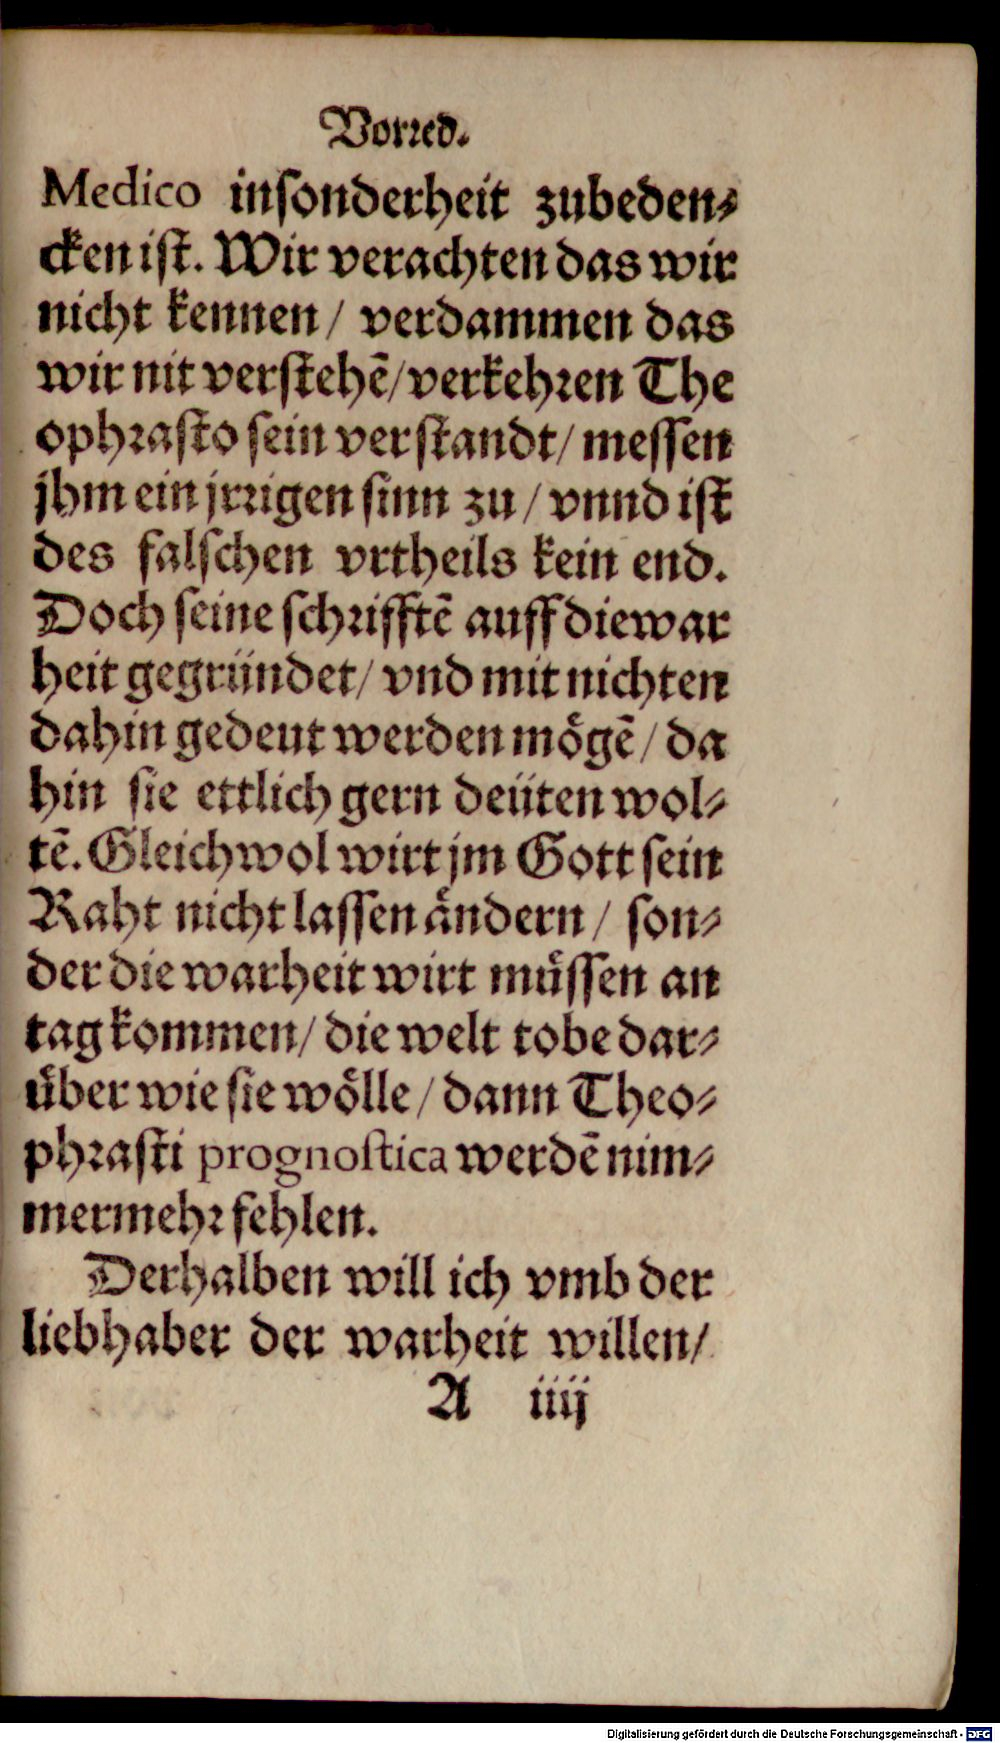 Vorred.
Medico insonderheit zubeden⸗
cken ist. Wir verachten das wir
nicht kennen/ verdammen das
wir nit verstehē/ verkehren The
ophrasto sein verstandt/ messen
jhm ein jrrigen sinn zu/ vnnd ist
des falschen vrtheils kein end.
Doch seine schrifftē auff die war
heit gegründet/ vnd mit nichten
dahin gedeut werden mögē/ da
hin sie ettlich gern deüten wol⸗
tē. Gleichwol wirt jm Gott sein
Raht nicht lassen ändern/ son⸗
der die warheit wirt müssen an
tag kommen/ die welt tobe dar⸗
über wie sie wölle/ dann Theo⸗
phrasti prognostica werdē nim⸗
mermehr fehlen.
Derhalben will ich vmb der
liebhaber der warheit willen/
A iiij
Digitalisierung gefördert durch die Deutsche Forschungsgemeinschaft - DFG